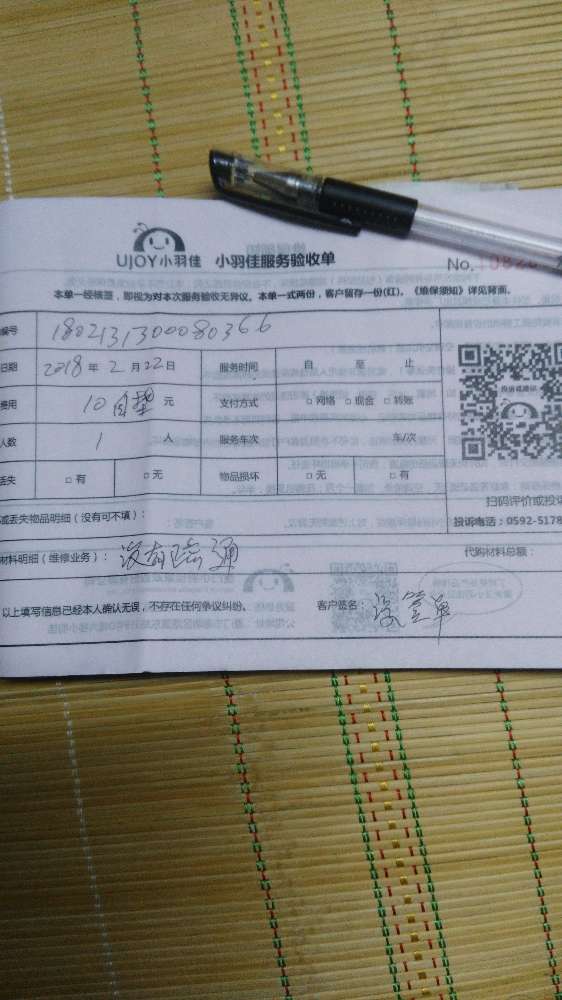 UJOY小羽佳 小羽佳服务验收单 No.
本单一经核签，即视为对本次服务验收无异议。本单一式两份，客户留存一份(红)。《维保须知》详见背面。
编号 180213130080366
日期 2018 年 2 月 22 日 服务时间 自 至 止
费用 10 自垫 元 支付方式 □ 网络 □ 现金 □ 转账
人数 1 人 服务车次 车/次
丢失 □ 有 □ 无 物品损坏 □ 无 □ 有
扫码评价或投诉
或丢失物品明细（没有可不填）： 投诉电话：0592-5178
材料明细（维修业务）： 没有疏通 代购材料总额：
以上填写信息已经本人确认无误，不存在任何争议纠纷。 客户签名： 没签单